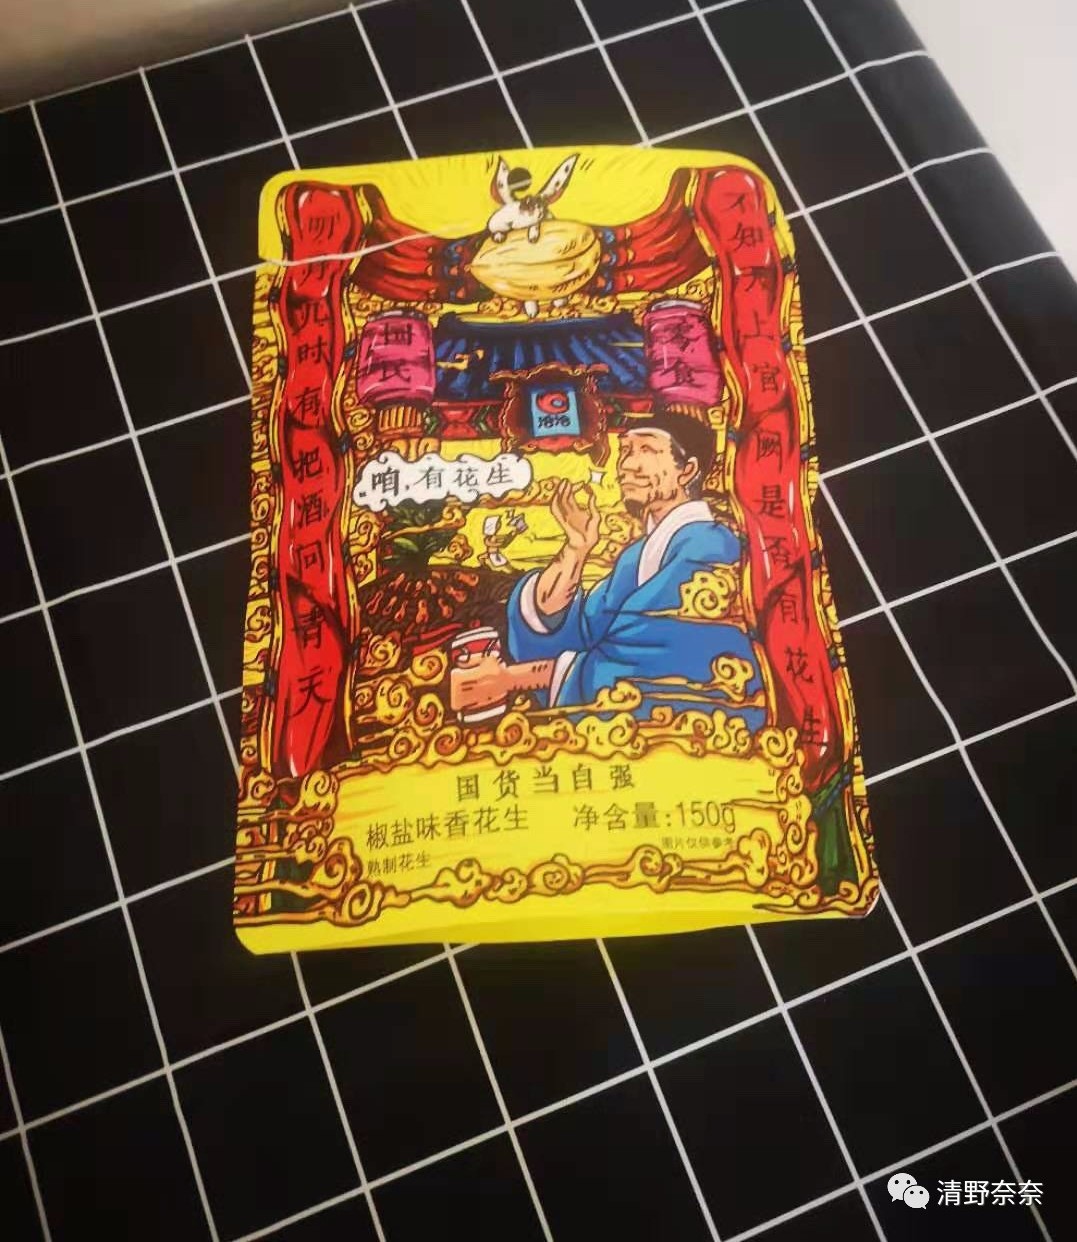 明月几时有把酒问青天
不知天上宫阙是否有花生
国民
零食
洽洽
咱,有花生
国货当自强
椒盐味香花生 净含量:150g
图片仅供参考
熟制花生
清野奈奈